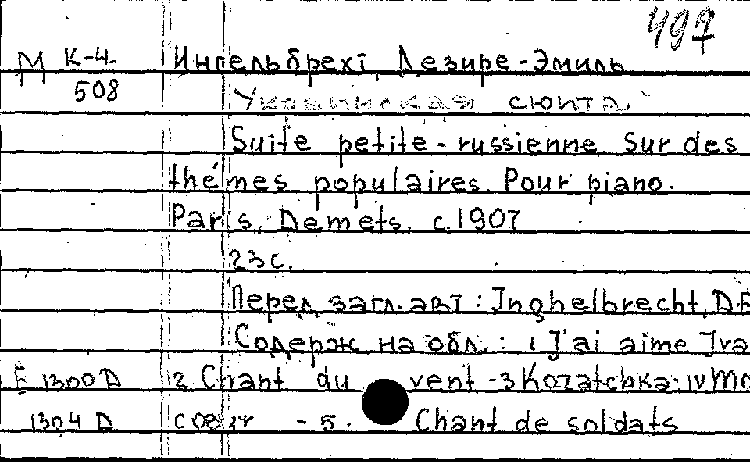 497
М К-4 Ингельбрехт, Дезире-Эмиль
508 Украинская сюита
Suite petite-russienne. Sur des
thémes populaires. Pour piano.
Paris, Demets, c.1907
23с.
Перед загл. авт: Inghelbrecht, D.E
Содерж на обл.: 1 J'ai aime Iva
E 1300 D 2 Chant du vent -3 Kozatchka-IV Mo
1304 D coeur - 5. Chant de soldats